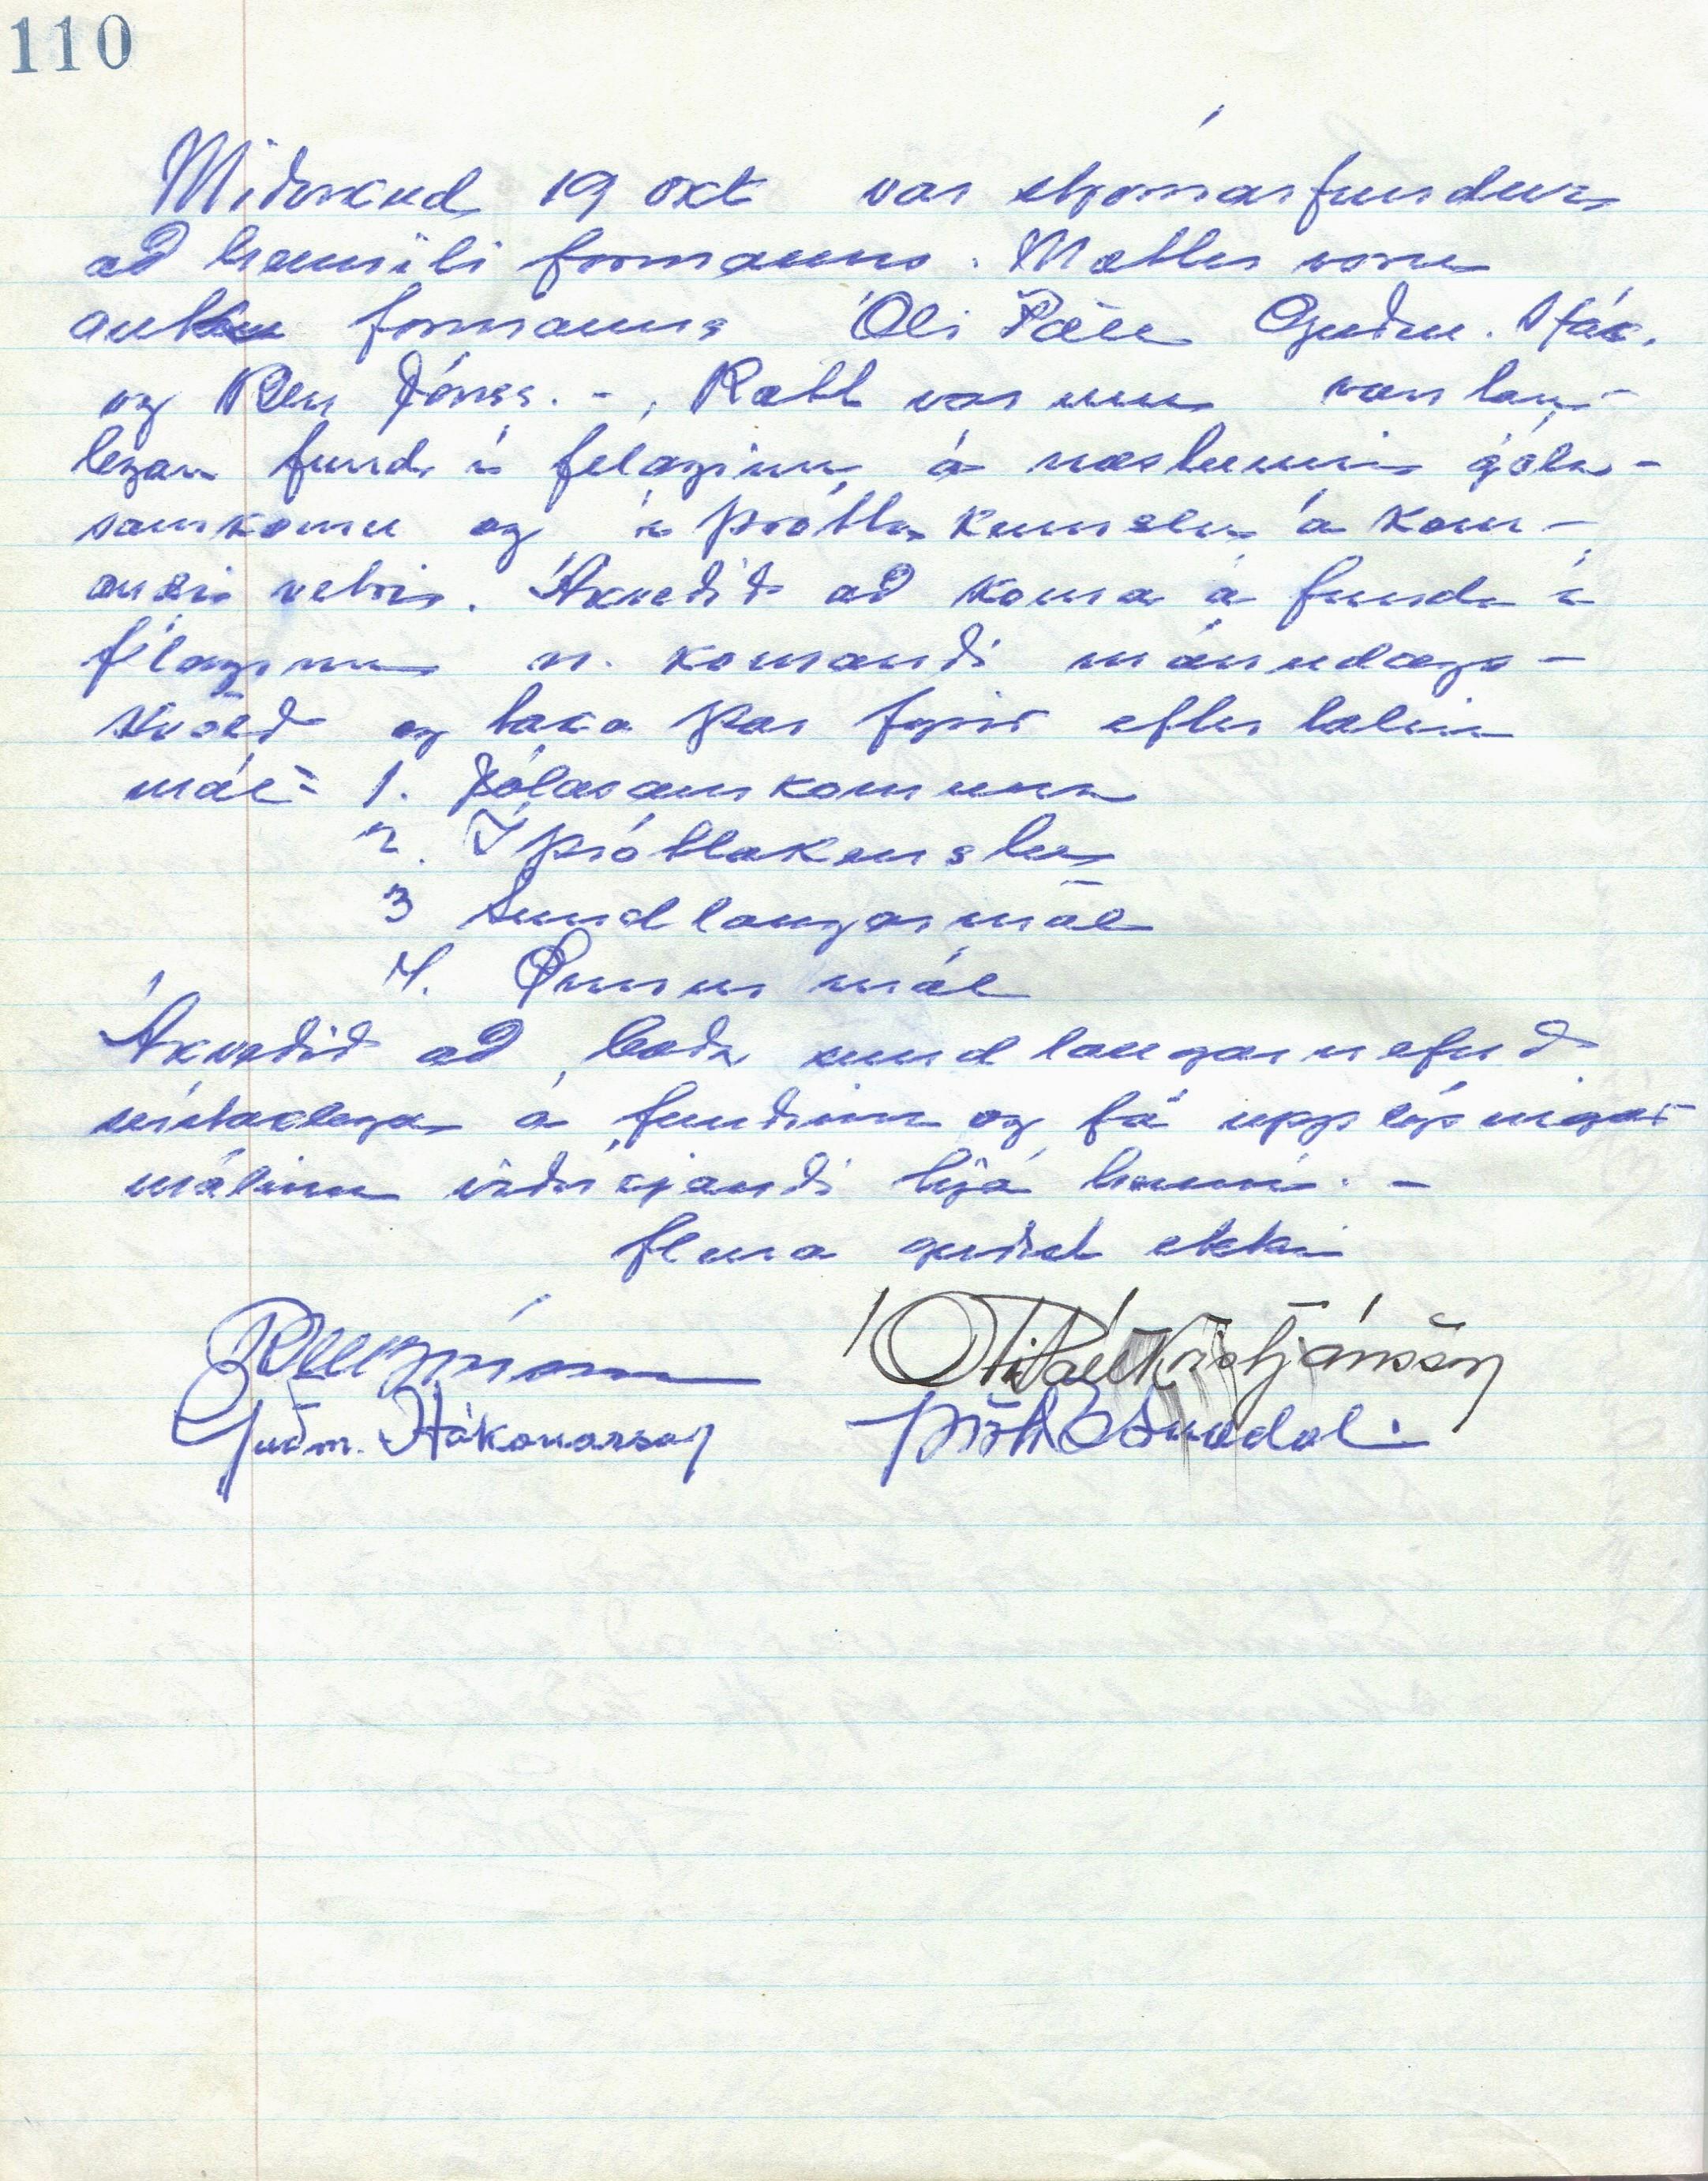 110
Miðvikud 19 okt var stjórnarfundur
að heimili formanns. Mættir voru
auk formanns Óli Páll Guðm. Hák.
og Ben Jónss. - Rætt var um væntan-
legan fund í félaginu á næstunni jóla-
samkomu og íþróttakennslu á kom-
andi vetri. Ákveðið að koma á fundi í
félaginu n. komandi mánudags-
kvöld og taka þar fyrir eftir talin
mál: 1. Jólasamkomuna
2. Íþróttakenslu
3 Sundlaugarmál
4. Önnur mál
Ákveðið að boða sundlaugarnefnd
sérstaklega á fundinn og fá upplýsingar
málinu viðvíkjandi hjá henni. -
fleira gerðist ekki
Óli Páll Kristjánsson
Guðm. Hákonarson